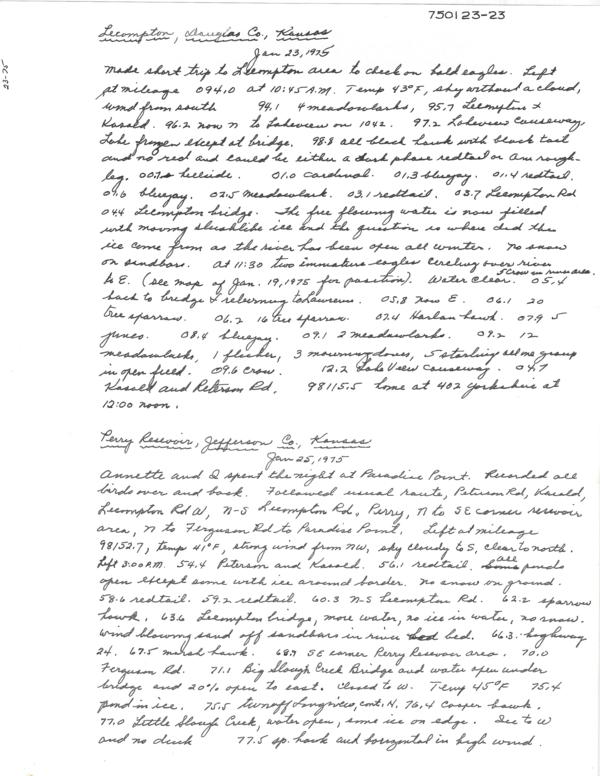 750123-23
23-75
Lecompton, Douglas Co., Kansas
Jan 23, 1975
Made short trip to Lecompton area to check on bald eagles. Left
at mileage 094.0 at 10:45 A.M. Temp 43°F, sky without a cloud,
wind from south 94.1 4 meadowlarks, 95.7 Lecompton &
Kasold. 96.2 now N to Lakeview on 1042. 97.2 Lakeview Causeway.
Lake frozen except at bridge. 98.8 all black hawk with black tail
and no red and could be either a dark phase redtail or Am rough-
leg. hillside. 01.0 cardinal. 01.3 bluejay. 01.4 redtail.
01.6 bluejay. 02.5 meadowlark. 03.1 redtail. 03.7 Lecompton Rd
04.4 Lecompton bridge. The free flowing water is now filled
with moving slushlike ice and the question is where did the
ice come from as the river has been open all winter. No snow
on sandbars. At 11:30 two immature eagles circling over river
to E. (see map of Jan. 19, 1975 for position). Water clear. 5 Crow in river area. 05.4
back to bridge & returning to Lawrence. 05.8 now E. 06.1 20
tree sparrow. 06.2 16 tree sparrow. 07.4 Harlan hawk. 07.9 5
juncos. 08.4 bluejay. 09.1 2 meadowlarks. 09.2 12
meadowlarks, 1 flicker, 3 mourning doves, 5 starling all one group
in open field. 09.6 crow. 12.2 Lake View Causeway.
Kasold and Peterson Rd. 98115.5 home at 402 Yorkshire at
12:00 noon.
Perry Resevoir, Jefferson Co., Kansas
Jan 25, 1975
Annette and I spent the night at Paradise Point. Recorded all
birds over and back. Followed usual route, Peterson Rd, Kasold,
Lecompton Rd W, N-S Lecompton Rd, Perry, N to SE corner resevoir
area, N to Ferguson Rd to Paradise Point. Left at mileage
98152.7, temp 41°F, strong wind from NW, sky cloudy to S, clear to north.
Left 3:00 P.M. 54.4 Peterson and Kasold. 56.1 redtail. all ponds
open except some with ice around border. No snow on ground.
58.6 redtail. 59.2 redtail. 60.3 N-S Lecompton Rd. 62.2 sparrow
hawk. 63.6 Lecompton bridge, more water, no ice in water, no snow.
Wind blowing sand off sandbars in river bed. 66.3 highway
24. 67.5 marsh hawk. 68.9 SE corner Perry Resevoir area. 70.0
Ferguson Rd. 71.1 Big Slough Creek Bridge and water open under
bridge and 20% open to east. Closed to W. Temp 45°F 75.4
pond in ice. 75.5 turnoff cont. N. 76.4 cooper hawk.
77.0 Little Slough Creek, water open, some ice on edge. Ice to W
and no duck 77.5 sp. hawk and horizontal in high wind.